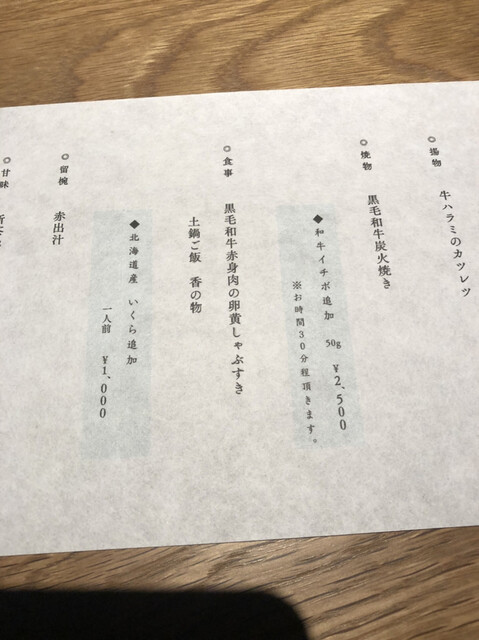 ◎揚物
牛ハラミのカツレツ
◎焼物
黒毛和牛炭火焼き
◆和牛イチボ追加 50g ¥2,500
※お時間30分程頂きます。
◎食事
黒毛和牛赤身肉の卵黄しゃぶすき
土鍋ご飯 香の物
◆北海道産 いくら追加
一人前 ¥1,000
◎留椀
赤出汁
◎甘味